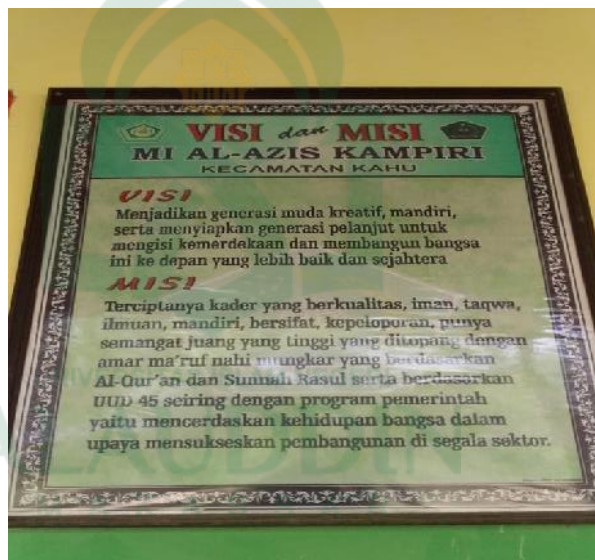 VISI dan MISI
MI AL-AZIS KAMPIRI
KECAMATAN KAHU
VISI
Menjadikan generasi muda kreatif, mandiri,
serta menyiapkan generasi pelanjut untuk
mengisi kemerdekaan dan membangun bangsa
ini ke depan yang lebih baik dan sejahtera
MISI
Terciptanya kader yang berkualitas, iman, taqwa,
ilmuan, mandiri, bersifat, kepeloporan, punya
semangat juang yang tinggi yang ditopang dengan
amar ma'ruf nahi mungkar yang berdasarkan
Al-Qur'an dan Sunnah Rasul serta berdasarkan
UUD 45 seiring dengan program pemerintah
yaitu mencerdaskan kehidupan bangsa dalam
upaya mensukseskan pembangunan di segala sektor.
ALAUDDIN